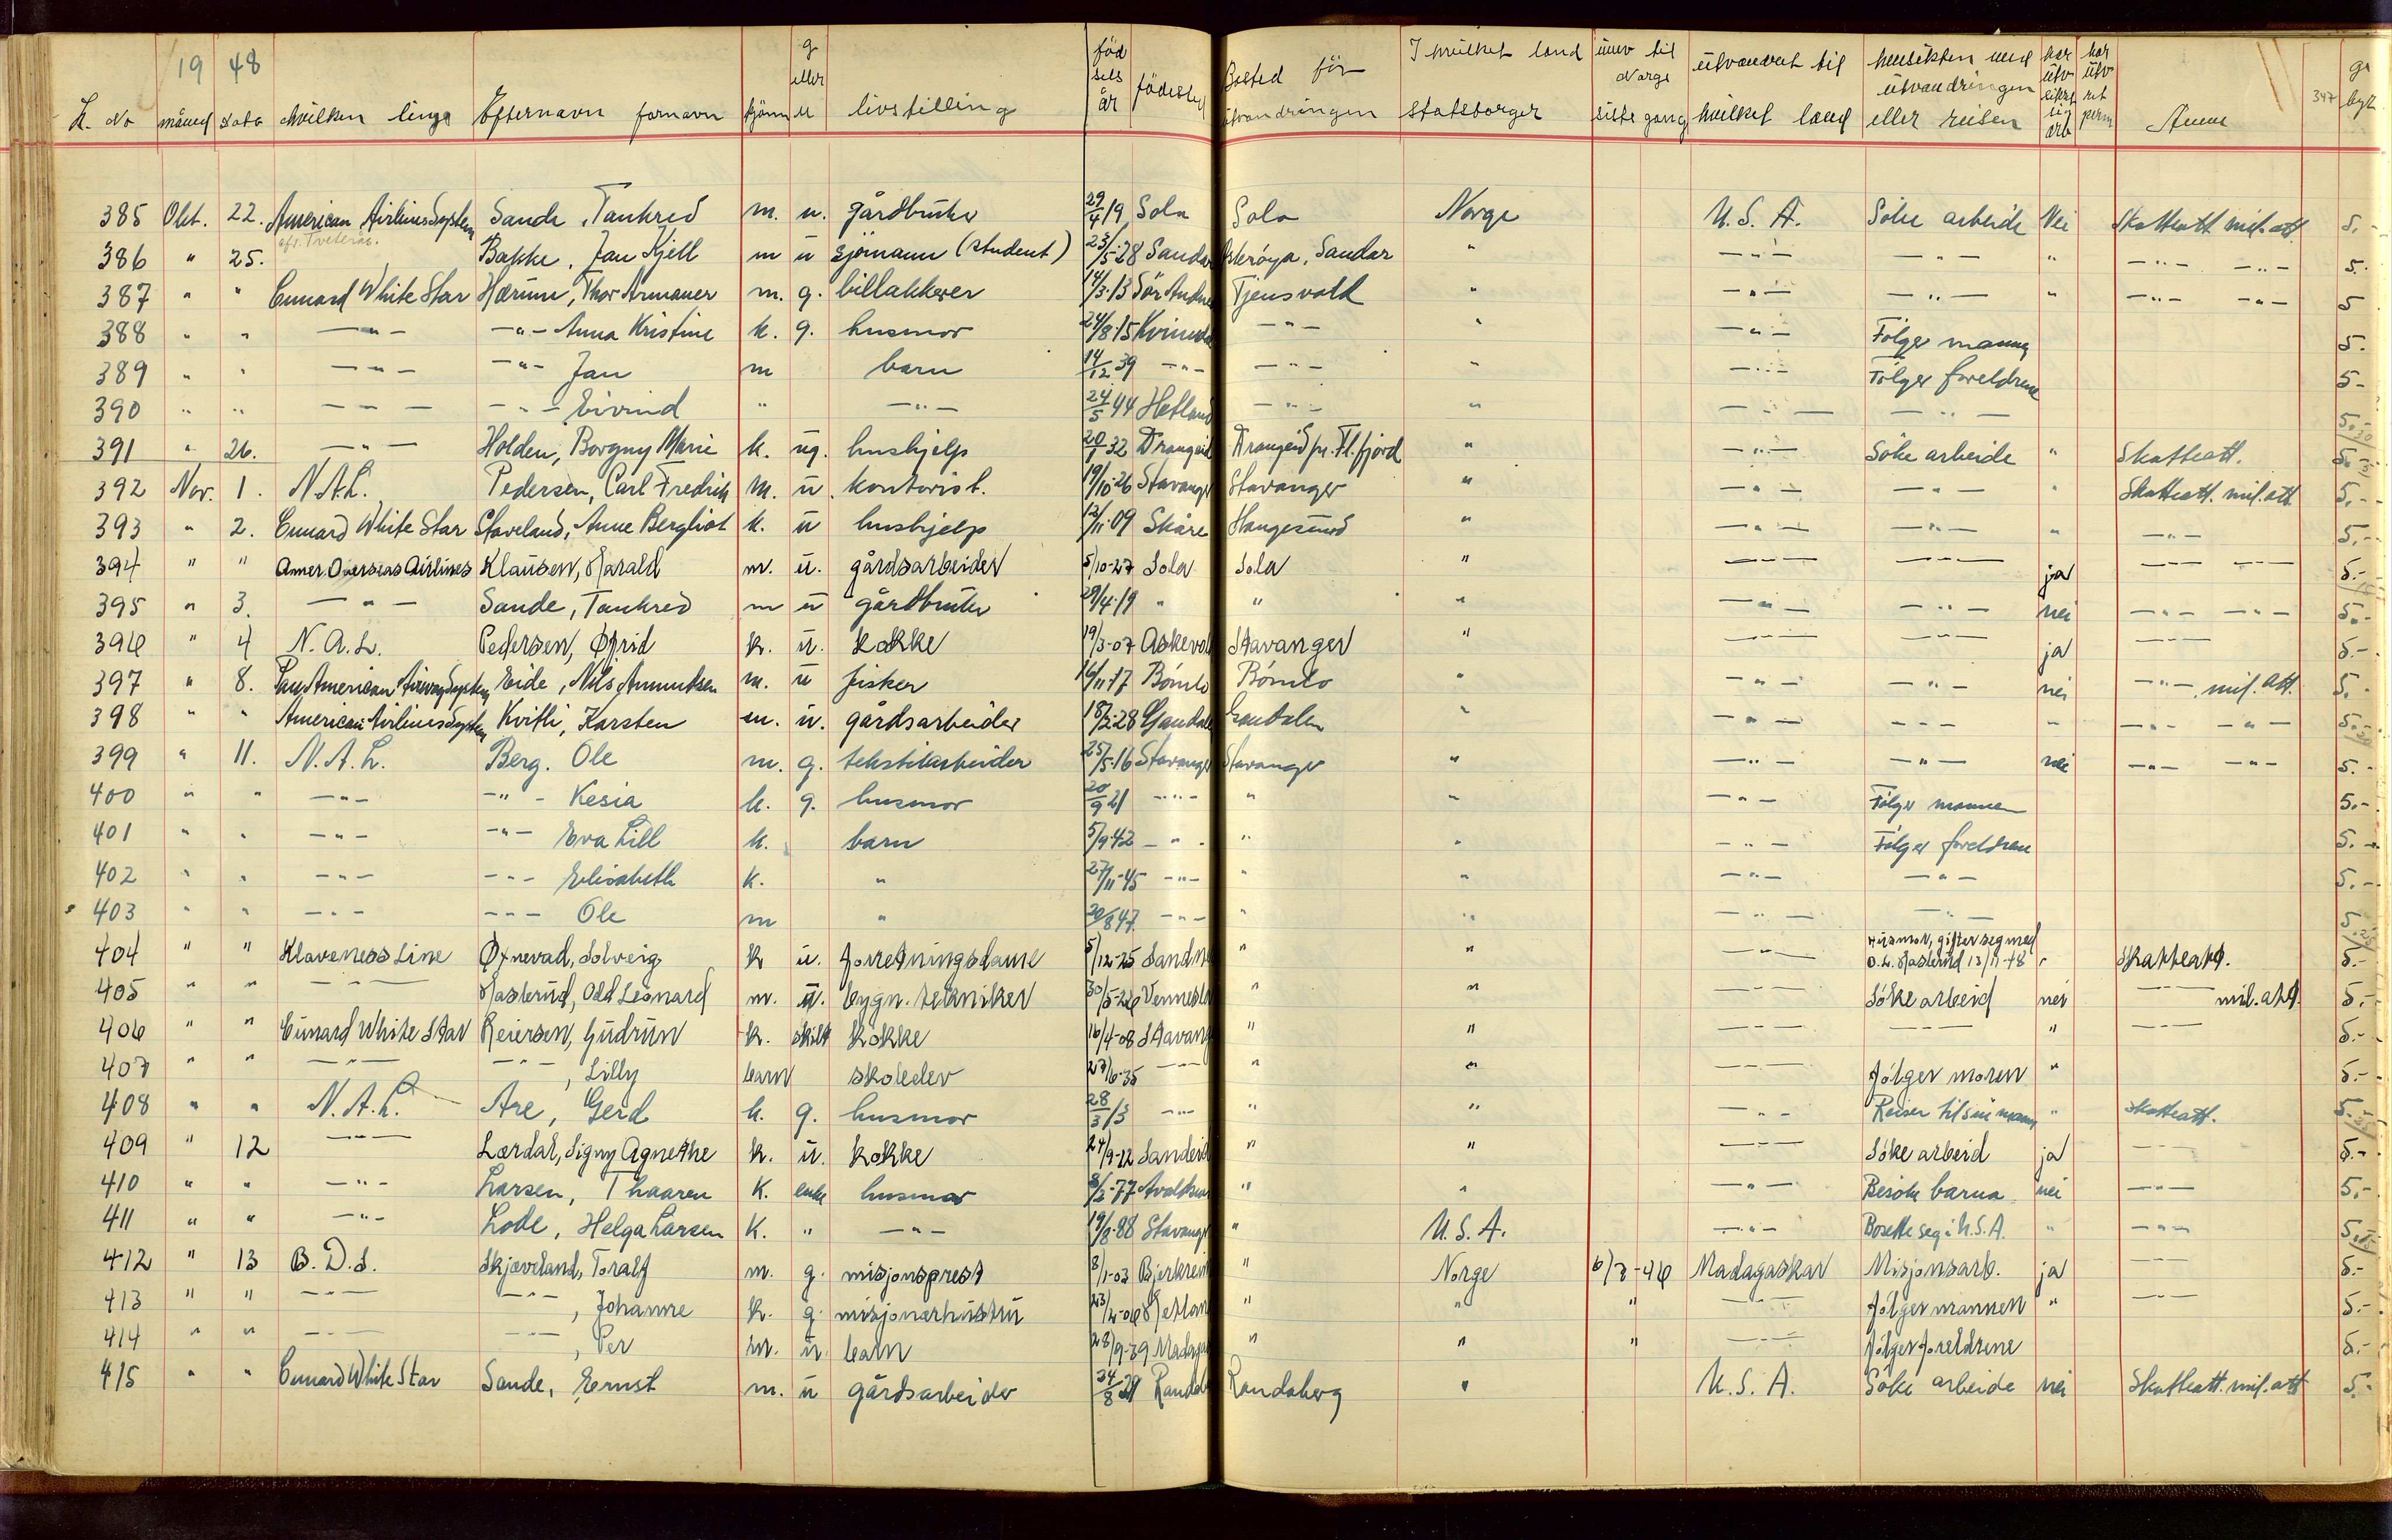 19 48
L. No måned dato hvilken linje Efternavn fornavn kjönn g eller u livstilling föd sels år födested Bosted för utvandringen I hvilket land statsborger innv til Norge siste gang utvandret til hvilket land hensikten med utvandringen eller reisen har utv sikret sig arb har utv ret perm Anm 347 ge byr
385 Okt. 22. American Airlines System Sande, Tankred m. u. gårdbruker 29/4 19 Sola Sola Norge U.S.A. Söke arbeide Nei Skatteatt. mil. att. 5.-
386 " 25. Bakke, Jan Kjell m u sjömann (student) 23/5-28 Sandar Österøya, Sandar " -"- -"- " -"- -"- 5.
387 " " Cunard White Star Hærum, Thor Armauer m. g. billakkerer 14/3-13 Tjensvold " -"- -"- " -"- -"- 5
388 " " -"- -"- Anna Kristine k. g. husmor 24/8-15 -"- " -"- Følger mannen 5.
389 " " -"- -"- Jan m barn 14/12 39 -"- -"- " -"- Følger foreldrene 5-
390 " " -"- -"- Eivind " -"- 24/5 44 Hetland -"- " -"- -"- 5.
391 " 26. -"- Holden, Borgny Marie k. ug. hushjelp 32 Drangeid Drangeid pr. Fl. fjord " -"- Söke arbeide " Skatteatt. 5.
392 Nov. 1. N.A.L. Pedersen, Carl Fredrik M. u. kontorist. 19/10-26 Stavanger Stavanger " -"- -"- " Skatteatt. mil. att 5.-
393 " 2. Cunard White Star Staveland, Anne Bergliot k. u hushjelp 12/11-09 Skåre Haugesund " -"- -"- " -"- 5.-
394 " " Amer. Overseas Airlines Klausen, Harald m. u. gårdsarbeider 5/10-27 Sola Sola " -"- -"- ja -"- -"- 5.-
395 " 3. -"- Sande, Tankred m u gårdbruker 29/4-19 " " " -"- -"- nei -"- -"- 5.-
396 " 4 N.A.L. Pedersen, k. u. kokke 19/3-07 Askevold Stavanger " -"- -"- ja -"- 5.-
397 " 8. Pan American Airways System Eide, Nils m. u fisker 16/11-17 Bömlo Bömlo " -"- -"- nei -"- mil. att. 5.-
398 " " American Airlines System Kvifti, Karsten m. u. gårdsarbeider 18/2-28 Gandal Gandalen " -"- -"- " -"- -"- 5.-
399 " 11. N.A.L. Berg. Ole m. g. tekstilarbeider 25/5-16 Stavanger Stavanger " -"- -"- nei -"- -"- 5.-
400 " " -"- -"- Kesia k. g. husmor 20/9 21 -"- " " -"- Følger mannen 5.-
401 " " -"- -"- Eva Lill k. barn 5/9-42 -"- " " -"- Følger foreldrene 5.-
402 " " -"- -"- Elisabeth k. " 27/11-45 -"- " " -"- -"- 5.-
403 " " -"- -"- Ole m " 20/8 47. -"- " " -"- -"- 5.
404 " " Klaveness Line Øxnevad, Solveig k u. forretningsdame 5/12-25 Sandnes " " -"- Husmor, gifter seg med O.L. Hasterud 13/11-48 " Skatteatt. 5.-
405 " " -"- Hasterud, Odd Leonard m. u. bygn. tekniker 30/5-26 Vennesla " " -"- Söke arbeid nei -"- mil. att. 5.-
406 " " Cunard White Star Reiersen, Gudrun k. skilt kokke 16/4-08 Stavang " " -"- -"- " -"- 5.-
407 " " -"- -"-, Lilly barn skoleelev 27/6-35 -"- " " -"- Følger moren " 5.-
408 " " N.A.L. Are, Gerd k. g. husmor 28/3 13 -"- " " -"- Reiser til sin mann " skatteatt. 5.-
409 " 12 -"- Lærdal, Signy Agnethe k. u. kokke 24/9-12 Sandeid " " -"- Söke arbeid ja -"- 5.-
410 " " -"- Larsen, Thaaren K. enke husmor 8/2-77 " " -"- Besöke barna nei -"- 5.-
411 " " -"- Lode, Helga Larsen K. " -"- 19/8-88 Stavanger " U.S.A. -"- Bosette seg i U.S.A. " -"- 5.
412 " 13 B.D.S. Skjæveland, Toralf m. g. misjonsprest 8/1-03 Bjerkreim " Norge 6/3-46 Madagaskar Misjonsarb. ja -"- 5.-
413 " " -"- -"-, Johanne k. g. misjonærhustru 23/2-06 Hetland " " " -"- Følger mannen " -"- 5.-
414 " " -"- -"-, Per m. u. barn 28/9-39 Madagas " " " -"- Følger foreldrene 5.-
415 " " Cunard White Star Sande, Ernst m. u gårdsarbeider 24/8 29 Randab Randaberg " U.S.A. Söke arbeide nei Skatteatt. mil. att 5.-